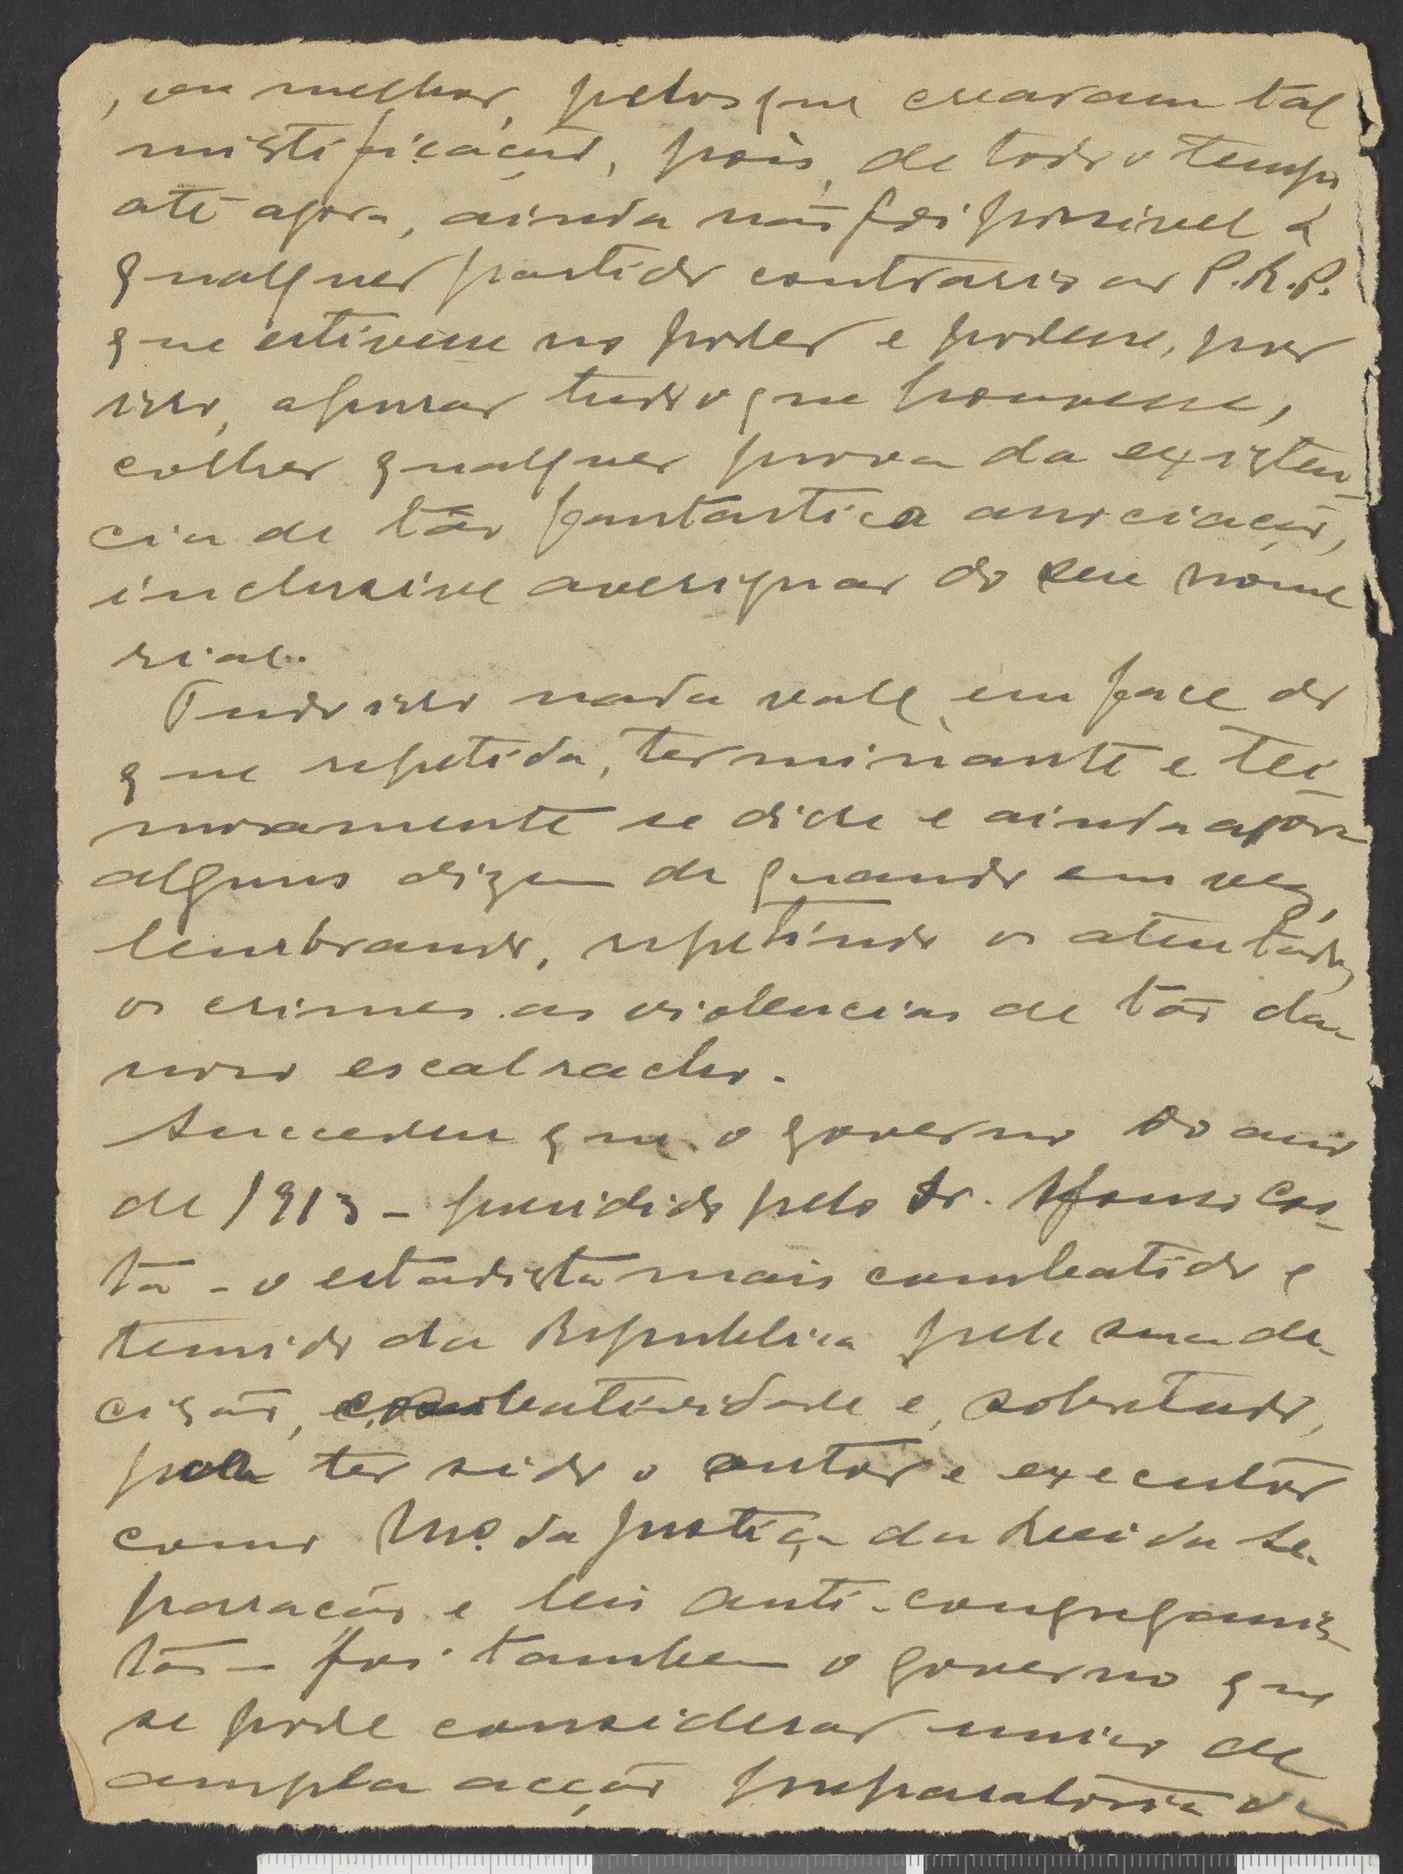 , ou melhor, pelos que crearam tal
mistificação, pois, de todo o tempo
até agora, ainda não foi possivel a
qualquer partido contrario ao P.R.P.
que estivesse no poder e podesse, por
isso, apurar tudo o que houvesse,
colher qualquer prova da existen-
cia de tão fantastica associação,
inclusive averiguar do seu nome
rial.
Tudo isso nada vale em face do
que repetida, terminante e tei-
mosamente se disse e ainda agora
alguns dizem de quando em vez,
lembrando, repetindo os atentados,
os crimes as violencias de tão da-
noso escalracho.
Sucedeu que o governo do ano
de 1913 - presidido pelo Dr. Afonso Cos-
ta - o estadista mais combatido e
temido da Republica pela sua de-
cisão, combatividade e, sobretudo,
por ter sido o autor e executor
como Mº. da Justiça da Lei da Se-
paração e leis anti-congreganis-
tas - foi tambem o governo que
se pode considerar unico de
ampla acção preparatoria de